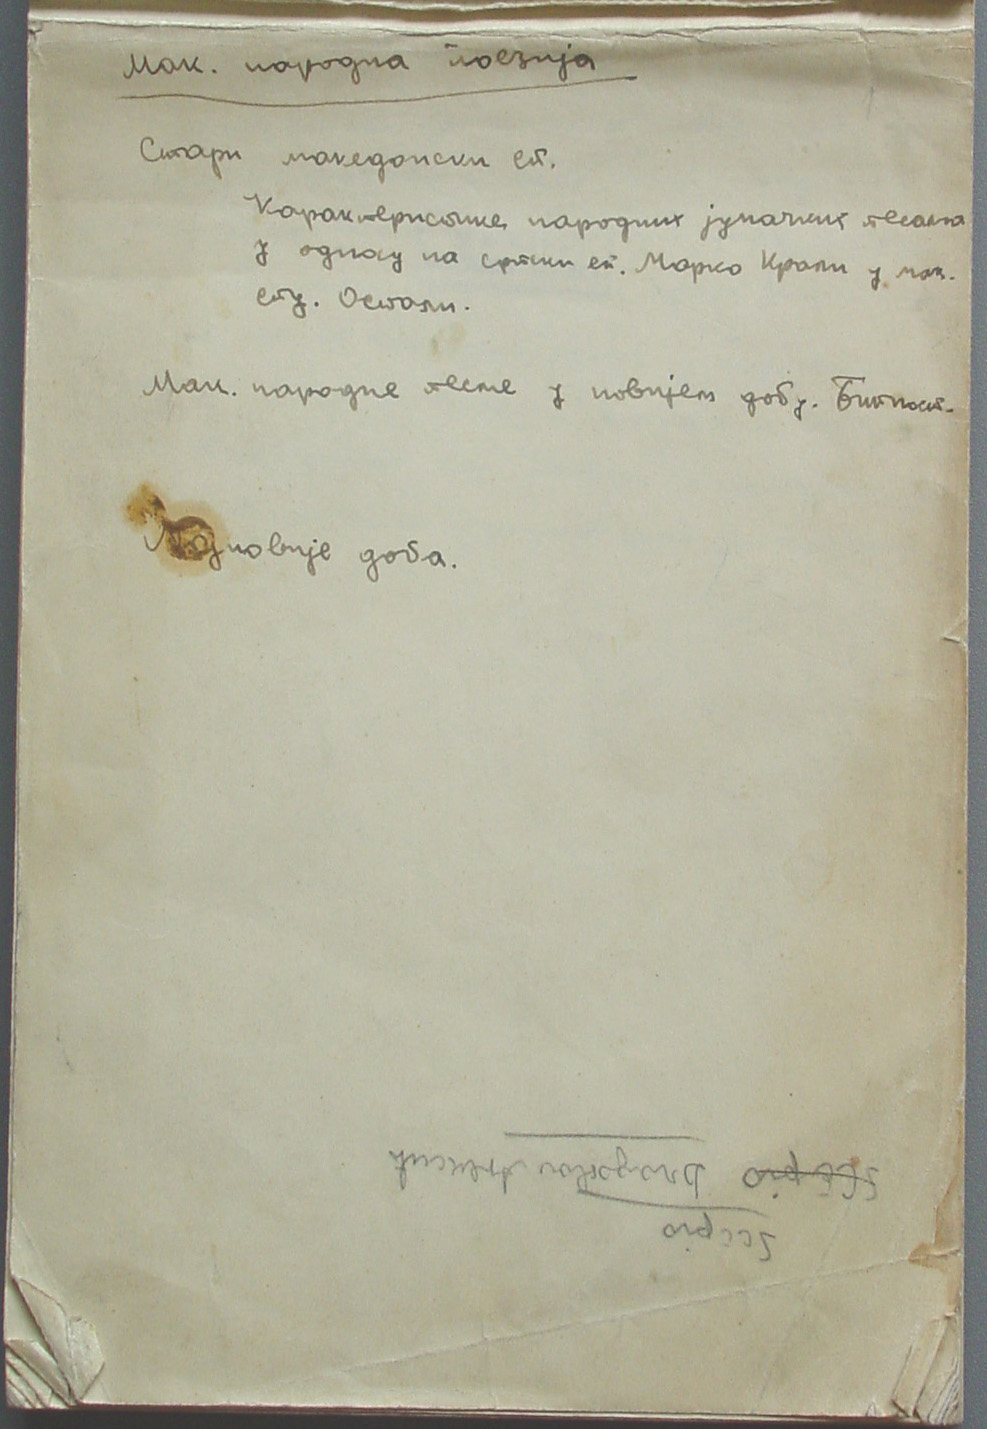 Мак. народна поезија
Стари македонски еп.
Карактеристике народних јуначких песама
у односу на српски еп. Марко Краљ у мак.
епу. Остали.
Мак. народне песме у новијем добу. Битност.
Најновије доба.
Scipio
Scipio